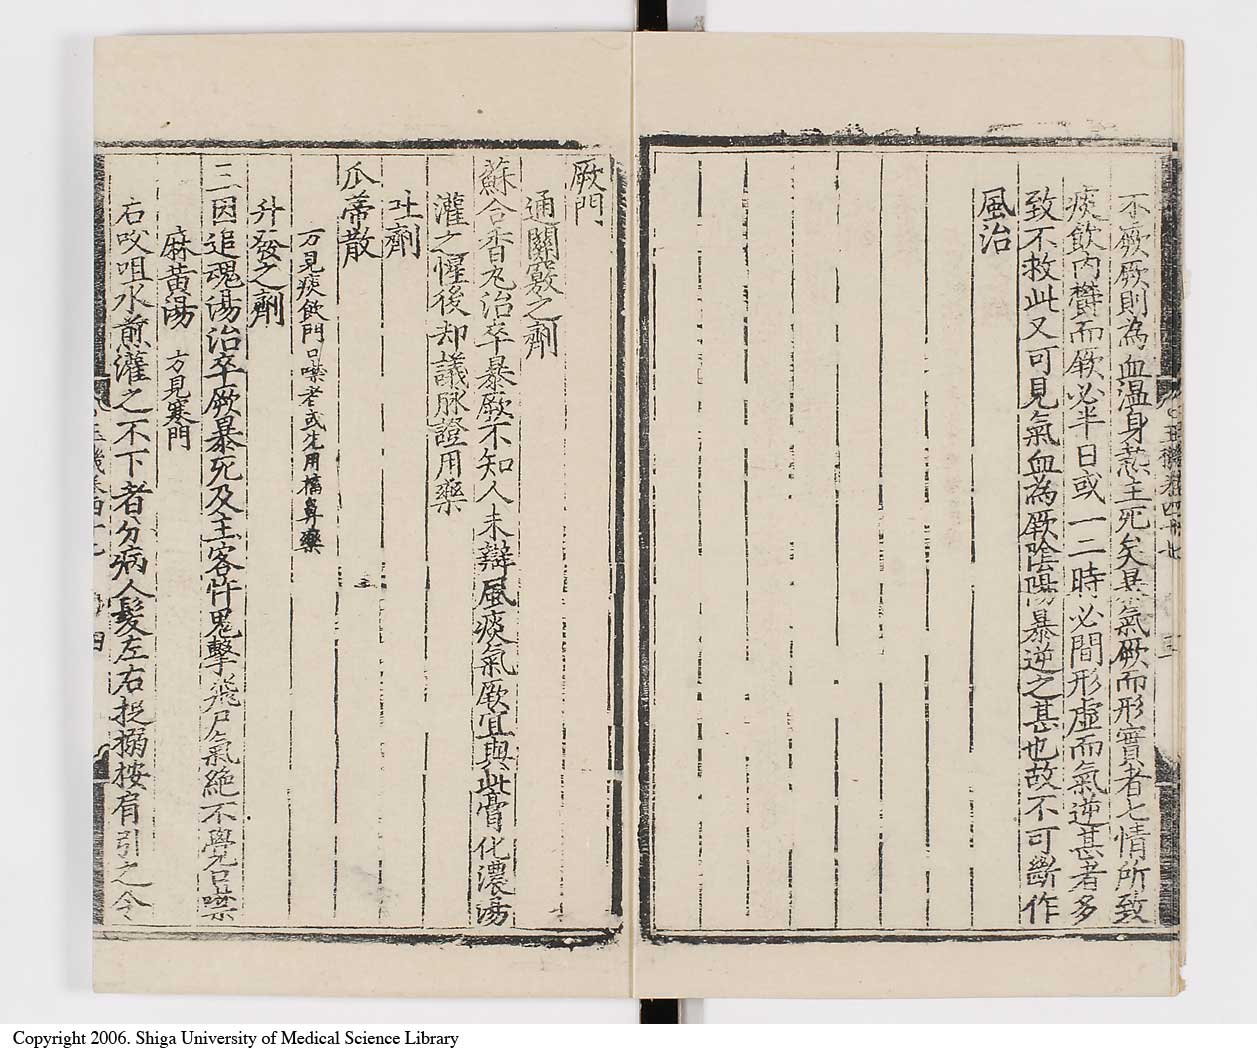 不厥厥則為血溫身熱主死矣是氣厥而形實者七情所致
痰飲內欝而厥必半日或一二時必間形虛而氣逆甚者多
致不救此又可見氣血為厥陰陽暴逆之甚也故不可斷作
風治
厥門
通關竅之劑
蘇合香丸治卒暴厥不知人未辯風痰氣厥宜與此膏化濃湯
灌之惺後却議脉證用藥
吐劑
瓜蒂散
方見痰飲門口噤者或先用搐鼻藥
升發之劑
三因追魂湯治卒厥暴死及主客忤鬼擊飛尸氣絶不覺口噤
麻黃湯 方見寒門
右㕮咀水煎灌之不下者分病人髮左右捉搦按肩引之令
Copyright 2006. Shiga University of Medical Science Library